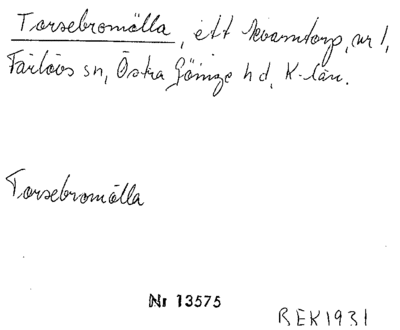 Torsebromölla, ett kvarntorp, nr 1,
Färlövs sn, Östra Göinge hd, K-län.
Torsebromölla
Nr 13575
BEK 1931